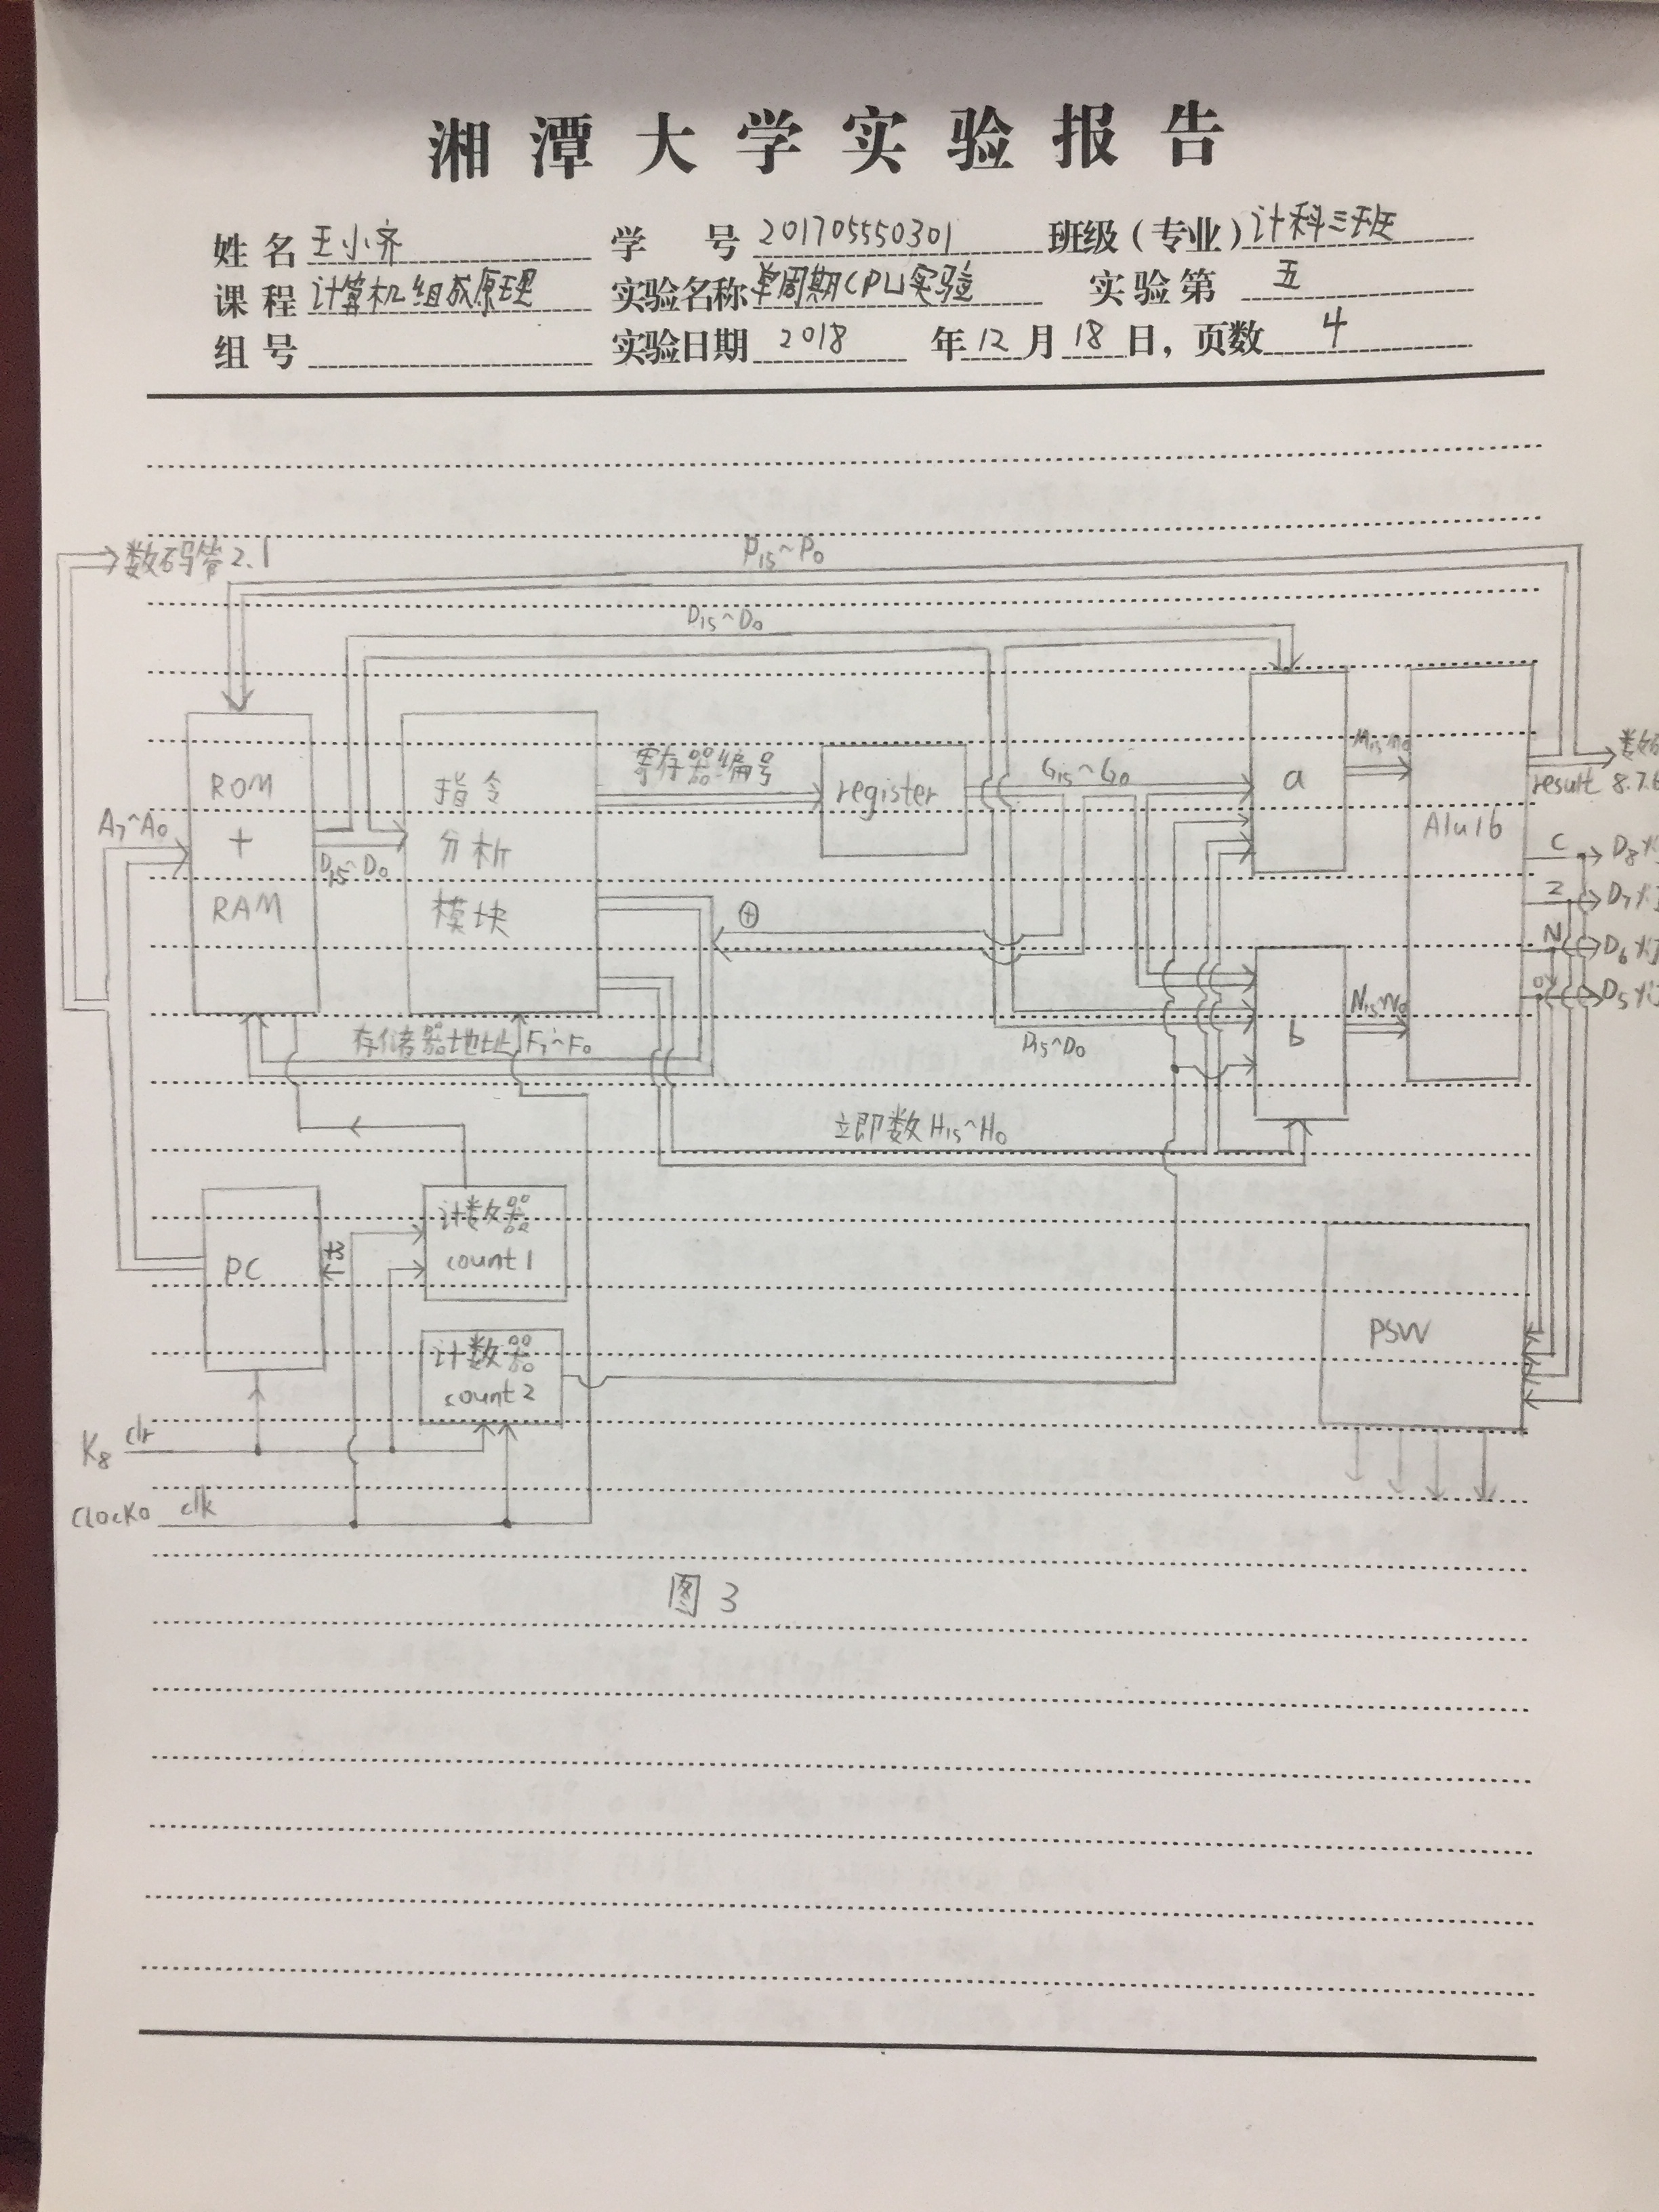 湘潭大学实验报告
姓名 王小齐 学号 201705550301 班级(专业) 计科三班
课程 计算机组成原理 实验名称 单周期CPU实验 实验第 五
组号 实验日期 2018 年 12 月 18 日, 页数 4
数码管2.1
P15~P0
D15~D0
ROM
+
RAM
A7~A0
D15~D0
指令
分析
模块
寄存器编号
register
G15~G0
a
M15~M0
Alu16
result 8.7.6
C D8灯
Z D7灯
N D6灯
D5灯
⊕
存储器地址 F7~F0
D15~D0
b
N15~N0
立即数 H15~H0
PC
计数器
count1
计数器
count2
PSW
K8 clr
Clock0 clk
图3